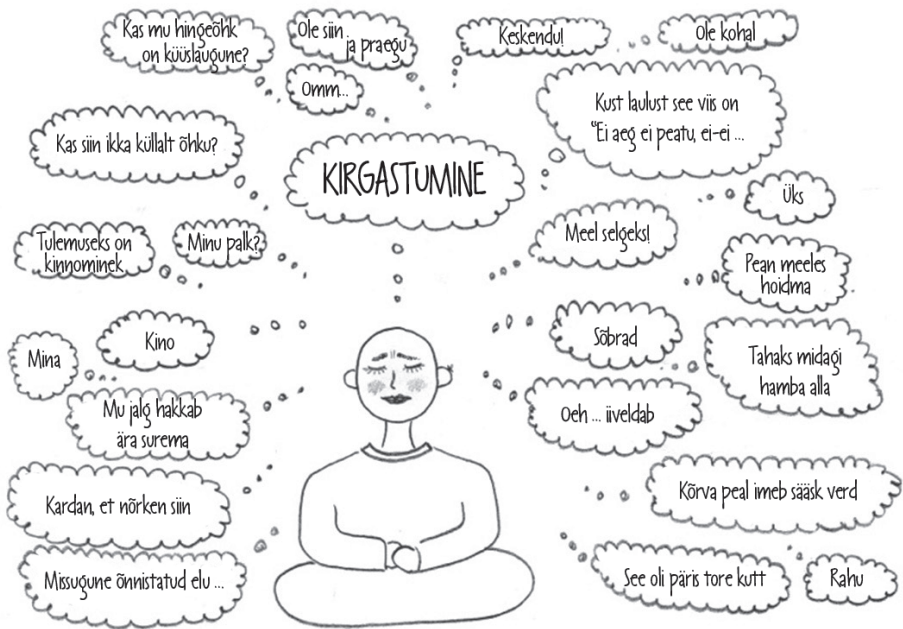 Kas mu hingeõhk
on küüslaugune?
Ole siin
ja praegu
Keskendu!
Ole kohal
Omm...
Kust laulust see viis on
"Ei aeg ei peatu, ei-ei ...
Kas siin ikka küllalt õhku?
KIRGASTUMINE
Üks
Tulemuseks on
kinnominek
Minu palk?
Meel selgeks!
Pean meeles
hoidma
Mina
Kino
Sõbrad
Tahaks midagi
hamba alla
Mu jalg hakkab
ära surema
Oeh ... iiveldab
Kardan, et nõrken siin
Kõrva peal imeb sääsk verd
Missugune õnnistatud elu ...
See oli päris tore kutt
Rahu